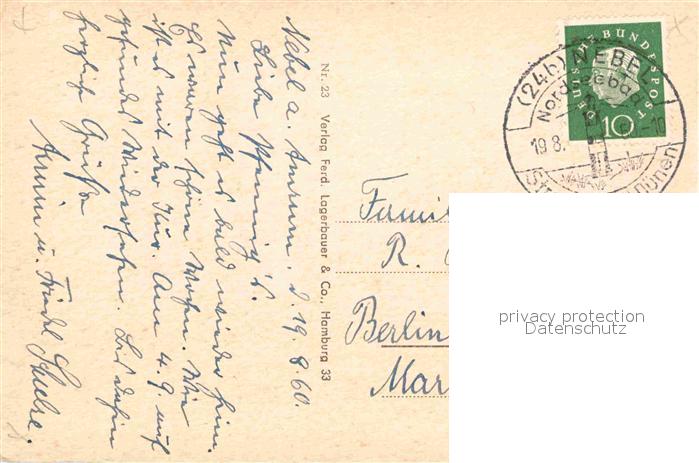 Nebel a. Amrum. d. 19. 8. 60.
Liebe Pfennig's.
Nun geht es bald wieder heim.
Es waren schöne Wochen. Wie
ist es mit der Kur. Am 4. 9. auf
gesundes Wiedersehen. Bis dahin
herzliche Grüße
Armin u. Friedel
Nr. 23 Verlag Ferd. Lagerbauer & Co., Hamburg 33
DEUTSCHE BUNDESPOST
10
(24b) NEBEL
Nordseebad
19.8.
Famil
R.
Berlin
Mar
privacy protection
Datenschutz